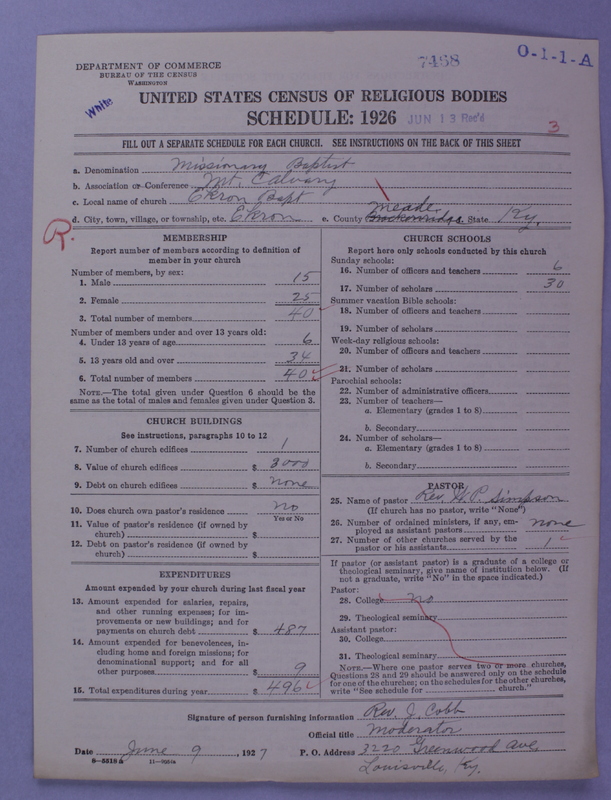 7468
O-1-1-A
DEPARTMENT OF COMMERCE
BUREAU OF THE CENSUS
WASHINGTON
White
UNITED STATES CENSUS OF RELIGIOUS BODIES
SCHEDULE: 1926 JUN 13 Rec'd
3
FILL OUT A SEPARATE SCHEDULE FOR EACH CHURCH. SEE INSTRUCTIONS ON THE BACK OF THIS SHEET
a. Denomination Missionary Baptist
b. Association or Conference Mt. Calvary
c. Local name of church Ekron Bapt
d. City, town, village, or township, etc. Ekron e. County Meade Breckenridge State Ky.
R.
MEMBERSHIP
Report number of members according to definition of
member in your church
Number of members, by sex:
1. Male 15
2. Female 25
3. Total number of members 40
Number of members under and over 13 years old:
4. Under 13 years of age 6
5. 13 years old and over 34
6. Total number of members 40
NOTE.—The total given under Question 6 should be the
same as the total of males and females given under Question 3.
CHURCH BUILDINGS
See instructions, paragraphs 10 to 12
7. Number of church edifices 1
8. Value of church edifices $ 3000
9. Debt on church edifices $ none
10. Does church own pastor's residence no
Yes or No
11. Value of pastor's residence (if owned by
church) $
12. Debt on pastor's residence (if owned by
church) $
EXPENDITURES
Amount expended by your church during last fiscal year
13. Amount expended for salaries, repairs,
and other running expenses; for im-
provements or new buildings; and for
payments on church debt $ 487
14. Amount expended for benevolences, in-
cluding home and foreign missions; for
denominational support; and for all
other purposes $ 9
15. Total expenditures during year $ 496
CHURCH SCHOOLS
Report here only schools conducted by this church
Sunday schools:
16. Number of officers and teachers 6
17. Number of scholars 30
Summer vacation Bible schools:
18. Number of officers and teachers
19. Number of scholars
Week-day religious schools:
20. Number of officers and teachers
21. Number of scholars
Parochial schools:
22. Number of administrative officers
23. Number of teachers—
a. Elementary (grades 1 to 8)
b. Secondary
24. Number of scholars—
a. Elementary (grades 1 to 8)
b. Secondary
PASTOR
25. Name of pastor Rev. H. P. Simpson
(If church has no pastor, write "None")
26. Number of ordained ministers, if any, em-
ployed as assistant pastors none
27. Number of other churches served by the
pastor or his assistants 1
If pastor (or assistant pastor) is a graduate of a college or
theological seminary, give name of institution below. (If
not a graduate, write "No" in the space indicated.)
Pastor:
28. College no
29. Theological seminary
Assistant pastor:
30. College
31. Theological seminary
NOTE.—Where one pastor serves two or more churches,
Questions 28 and 29 should be answered only on the schedule
for one of the churches; on the schedules for the other churches,
write "See schedule for church."
Signature of person furnishing information Rev. J. Cobb
Official title Moderator
Date June 9, 1927 P. O. Address 3220 Greenwood Ave
Louisville, Ky.